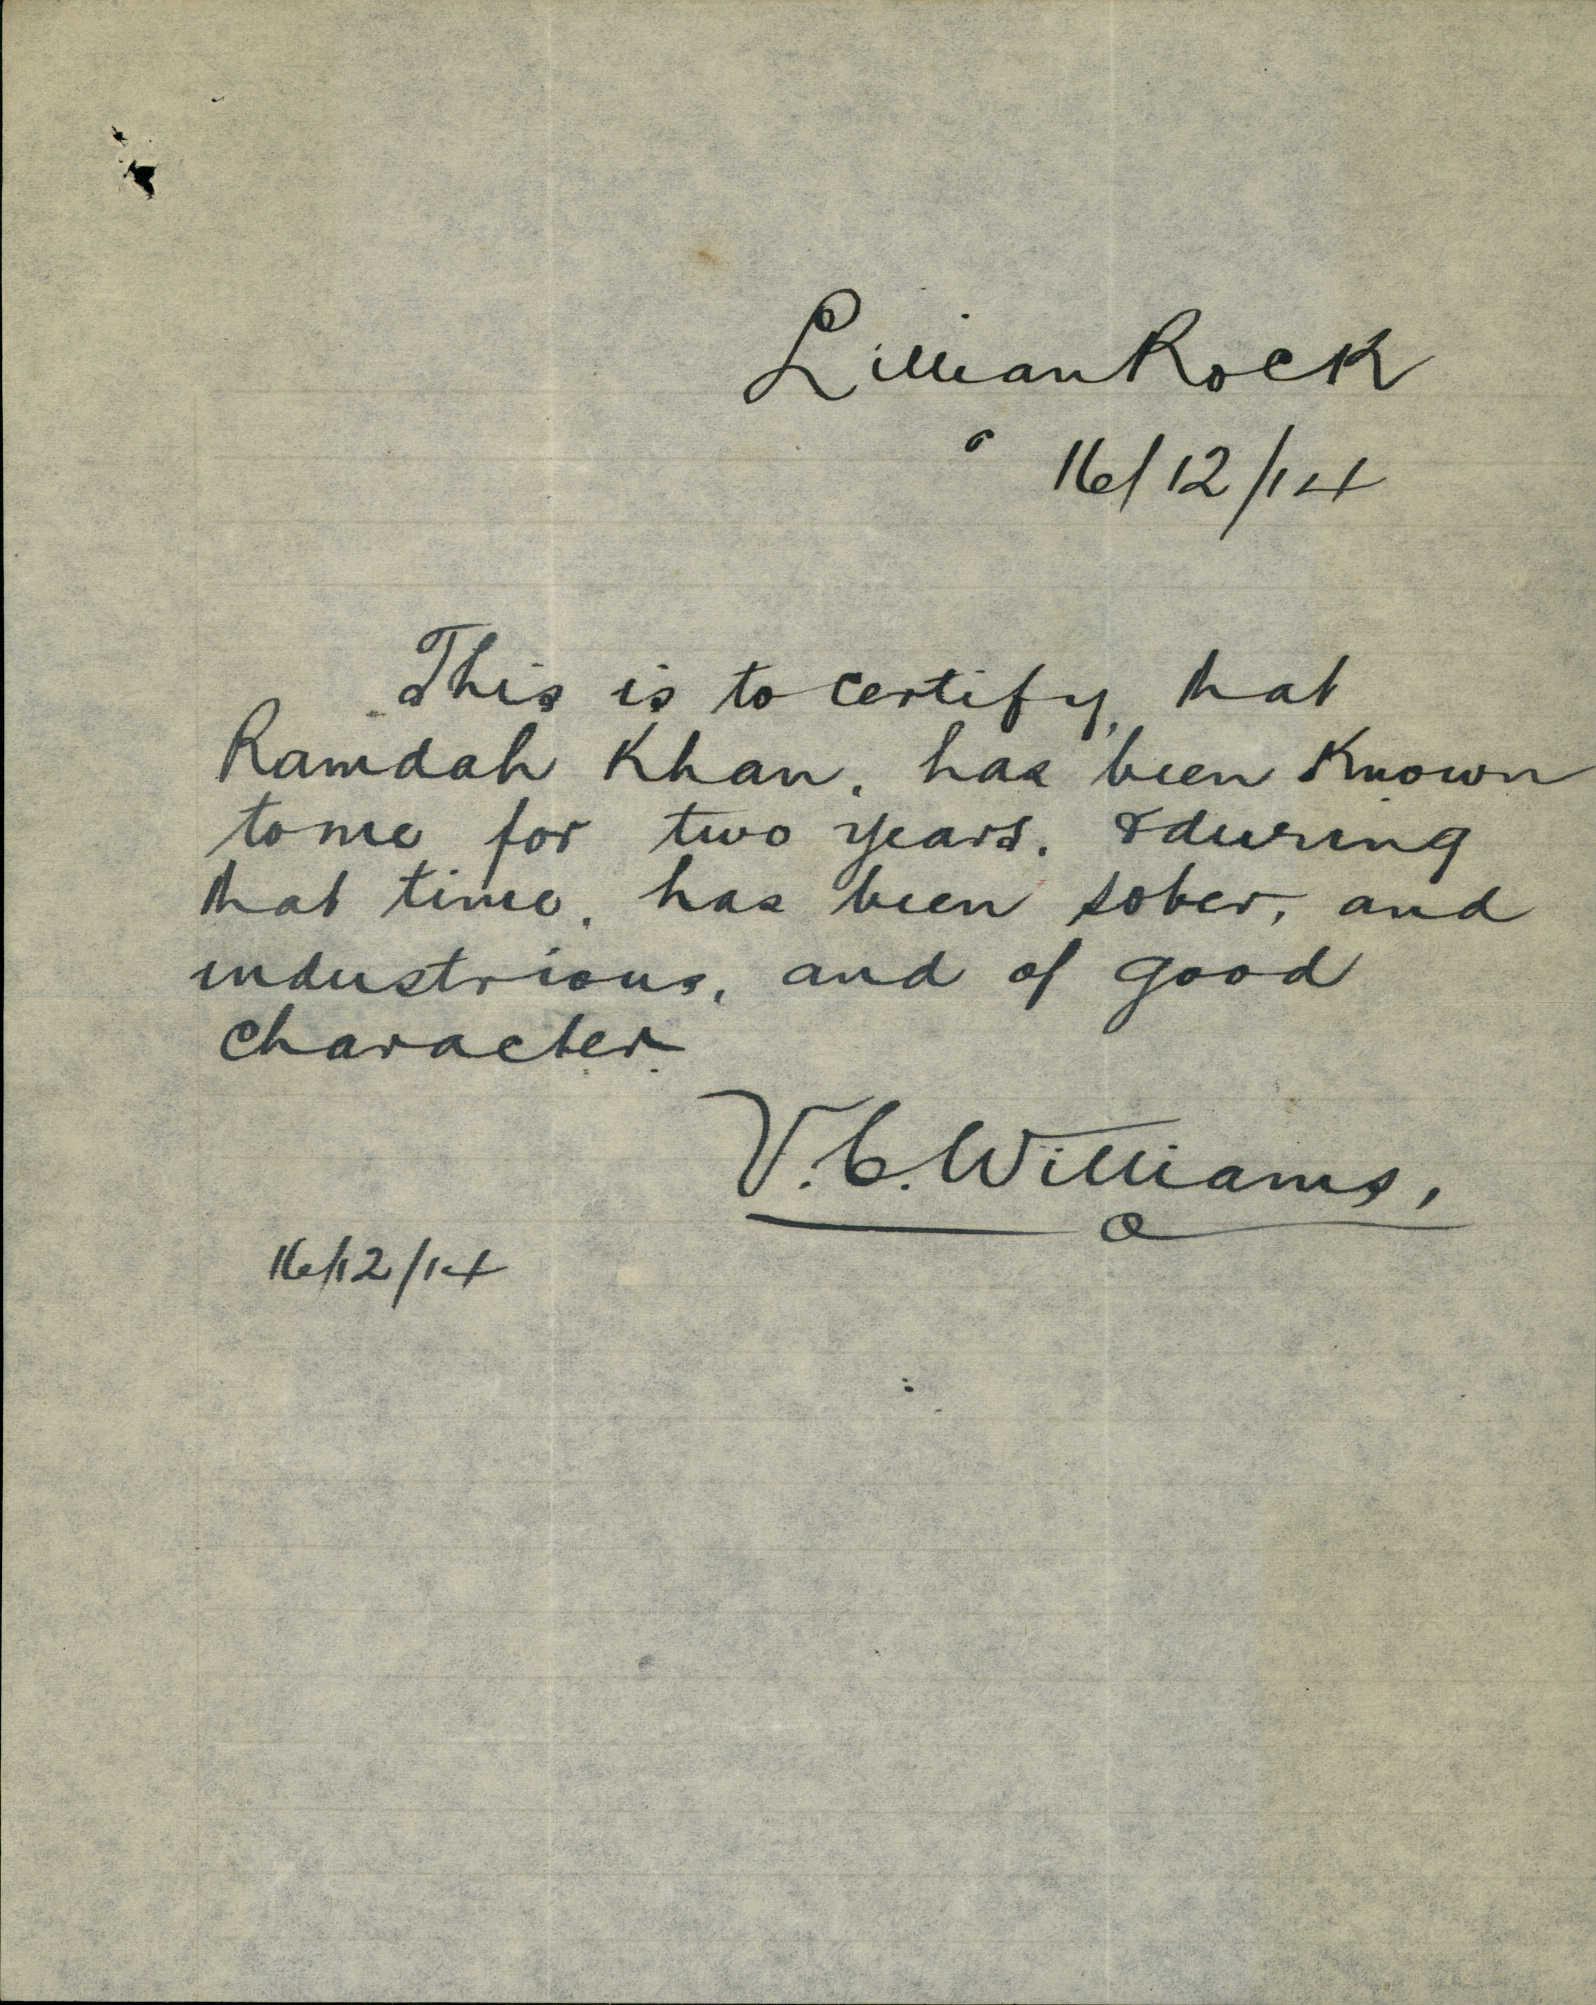 Lillian Rock
16/12/14
This is to certify, that
Ramdah Khan, has been known
to me for two years. & during
that time, has been sober, and
industrious, and of good
character.
V.C. Williams,
16/12/14